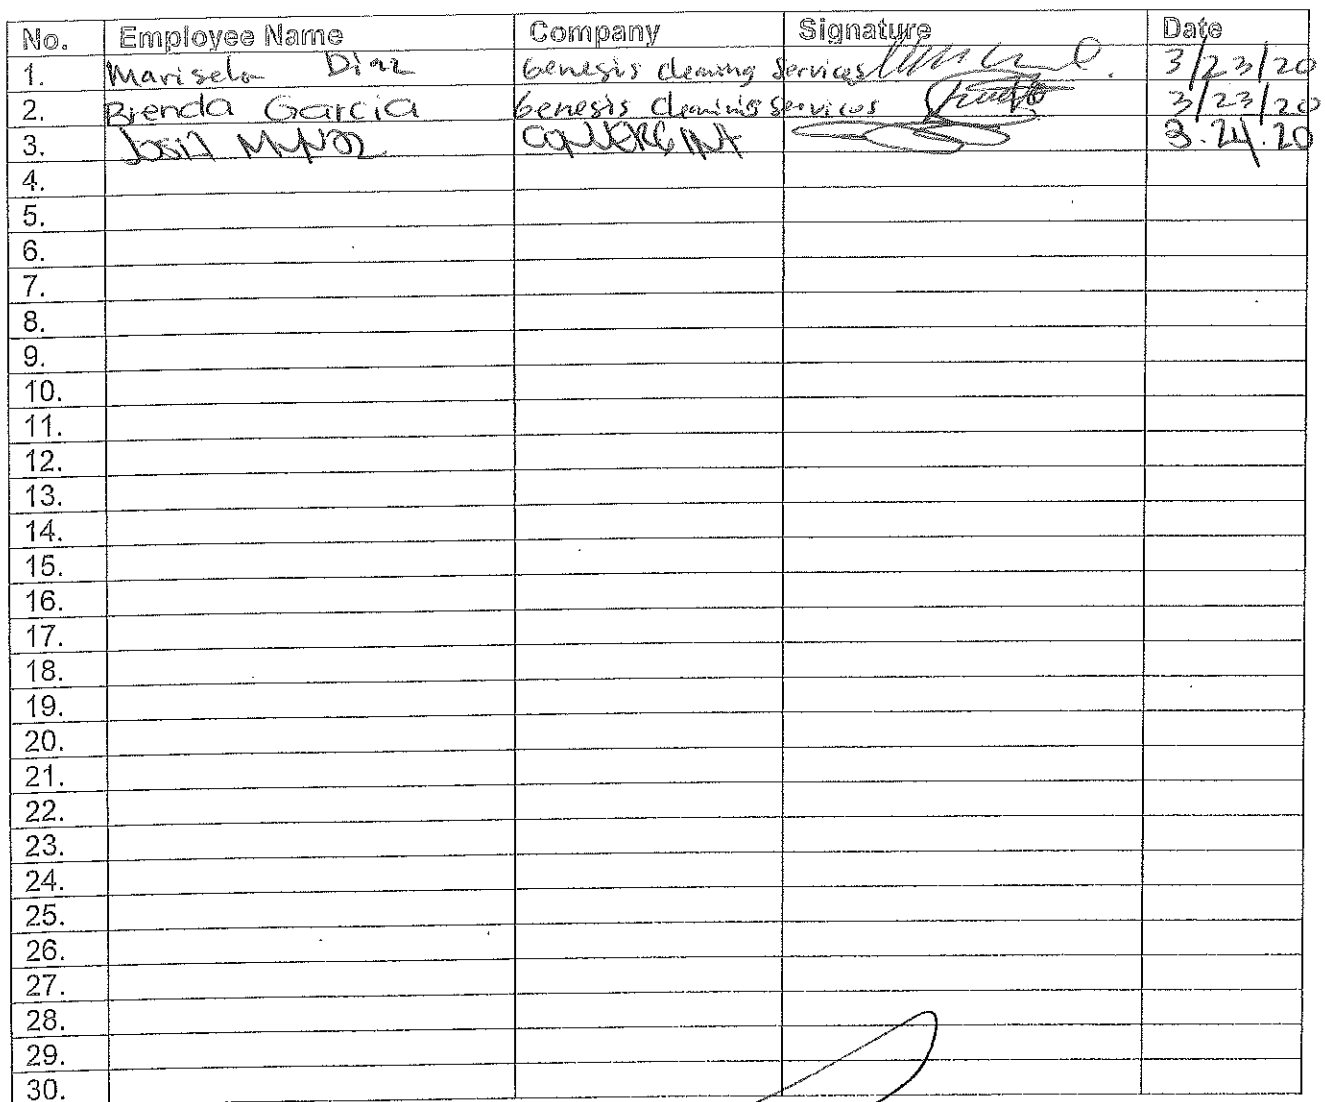 No. Employee Name Company Signature Date
1. Marisela Diaz Genesis cleaning Services 3/23/20
2. Brenda Garcia Genesis Cleaning Services 3/23/20
3. CONVERGINT 3.24.20
4.
5.
6.
7.
8.
9.
10.
11.
12.
13.
14.
15.
16.
17.
18.
19.
20.
21.
22.
23.
24.
25.
26.
27.
28.
29.
30.